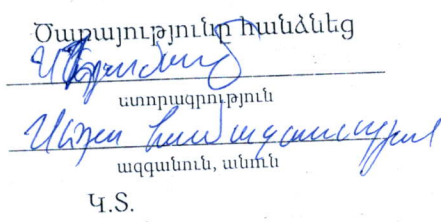 Ծառայությունը հանձնեց
ստորագրություն
ազգանուն, անուն
Կ.Տ.